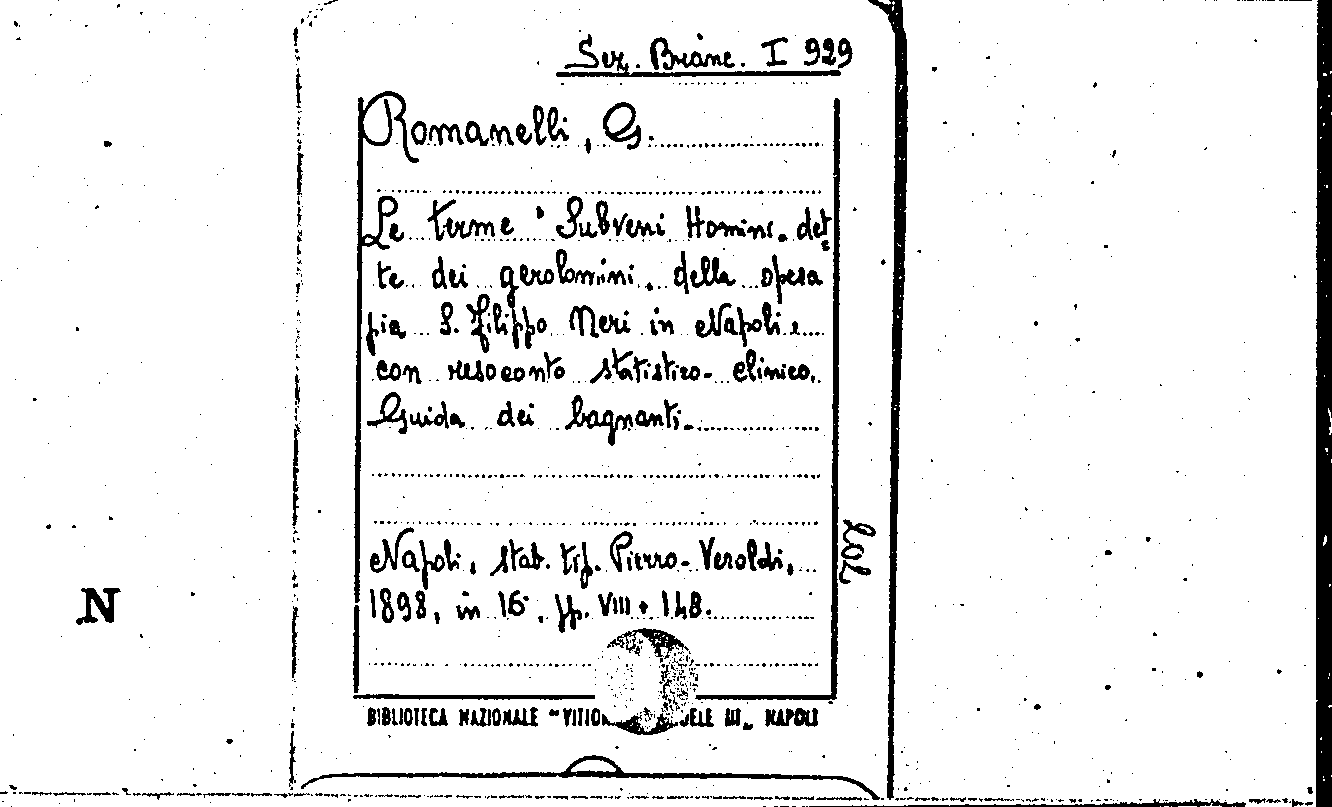 Sez. Branc. I 929
Romanelli, G.
Le terme "Subveni Homini" det=
te dei gerolomini, della opera
pia S. Filippo Neri in Napoli e
con resoconto statistico-clinico.
Guida dei bagnanti.
Napoli, stab. tip. Pierro-Veroldi,
1898, in 16°, pp. VIII + 148.
BIBLIOTECA NAZIONALE "VITTOR ELE III„ NAPOLI
N